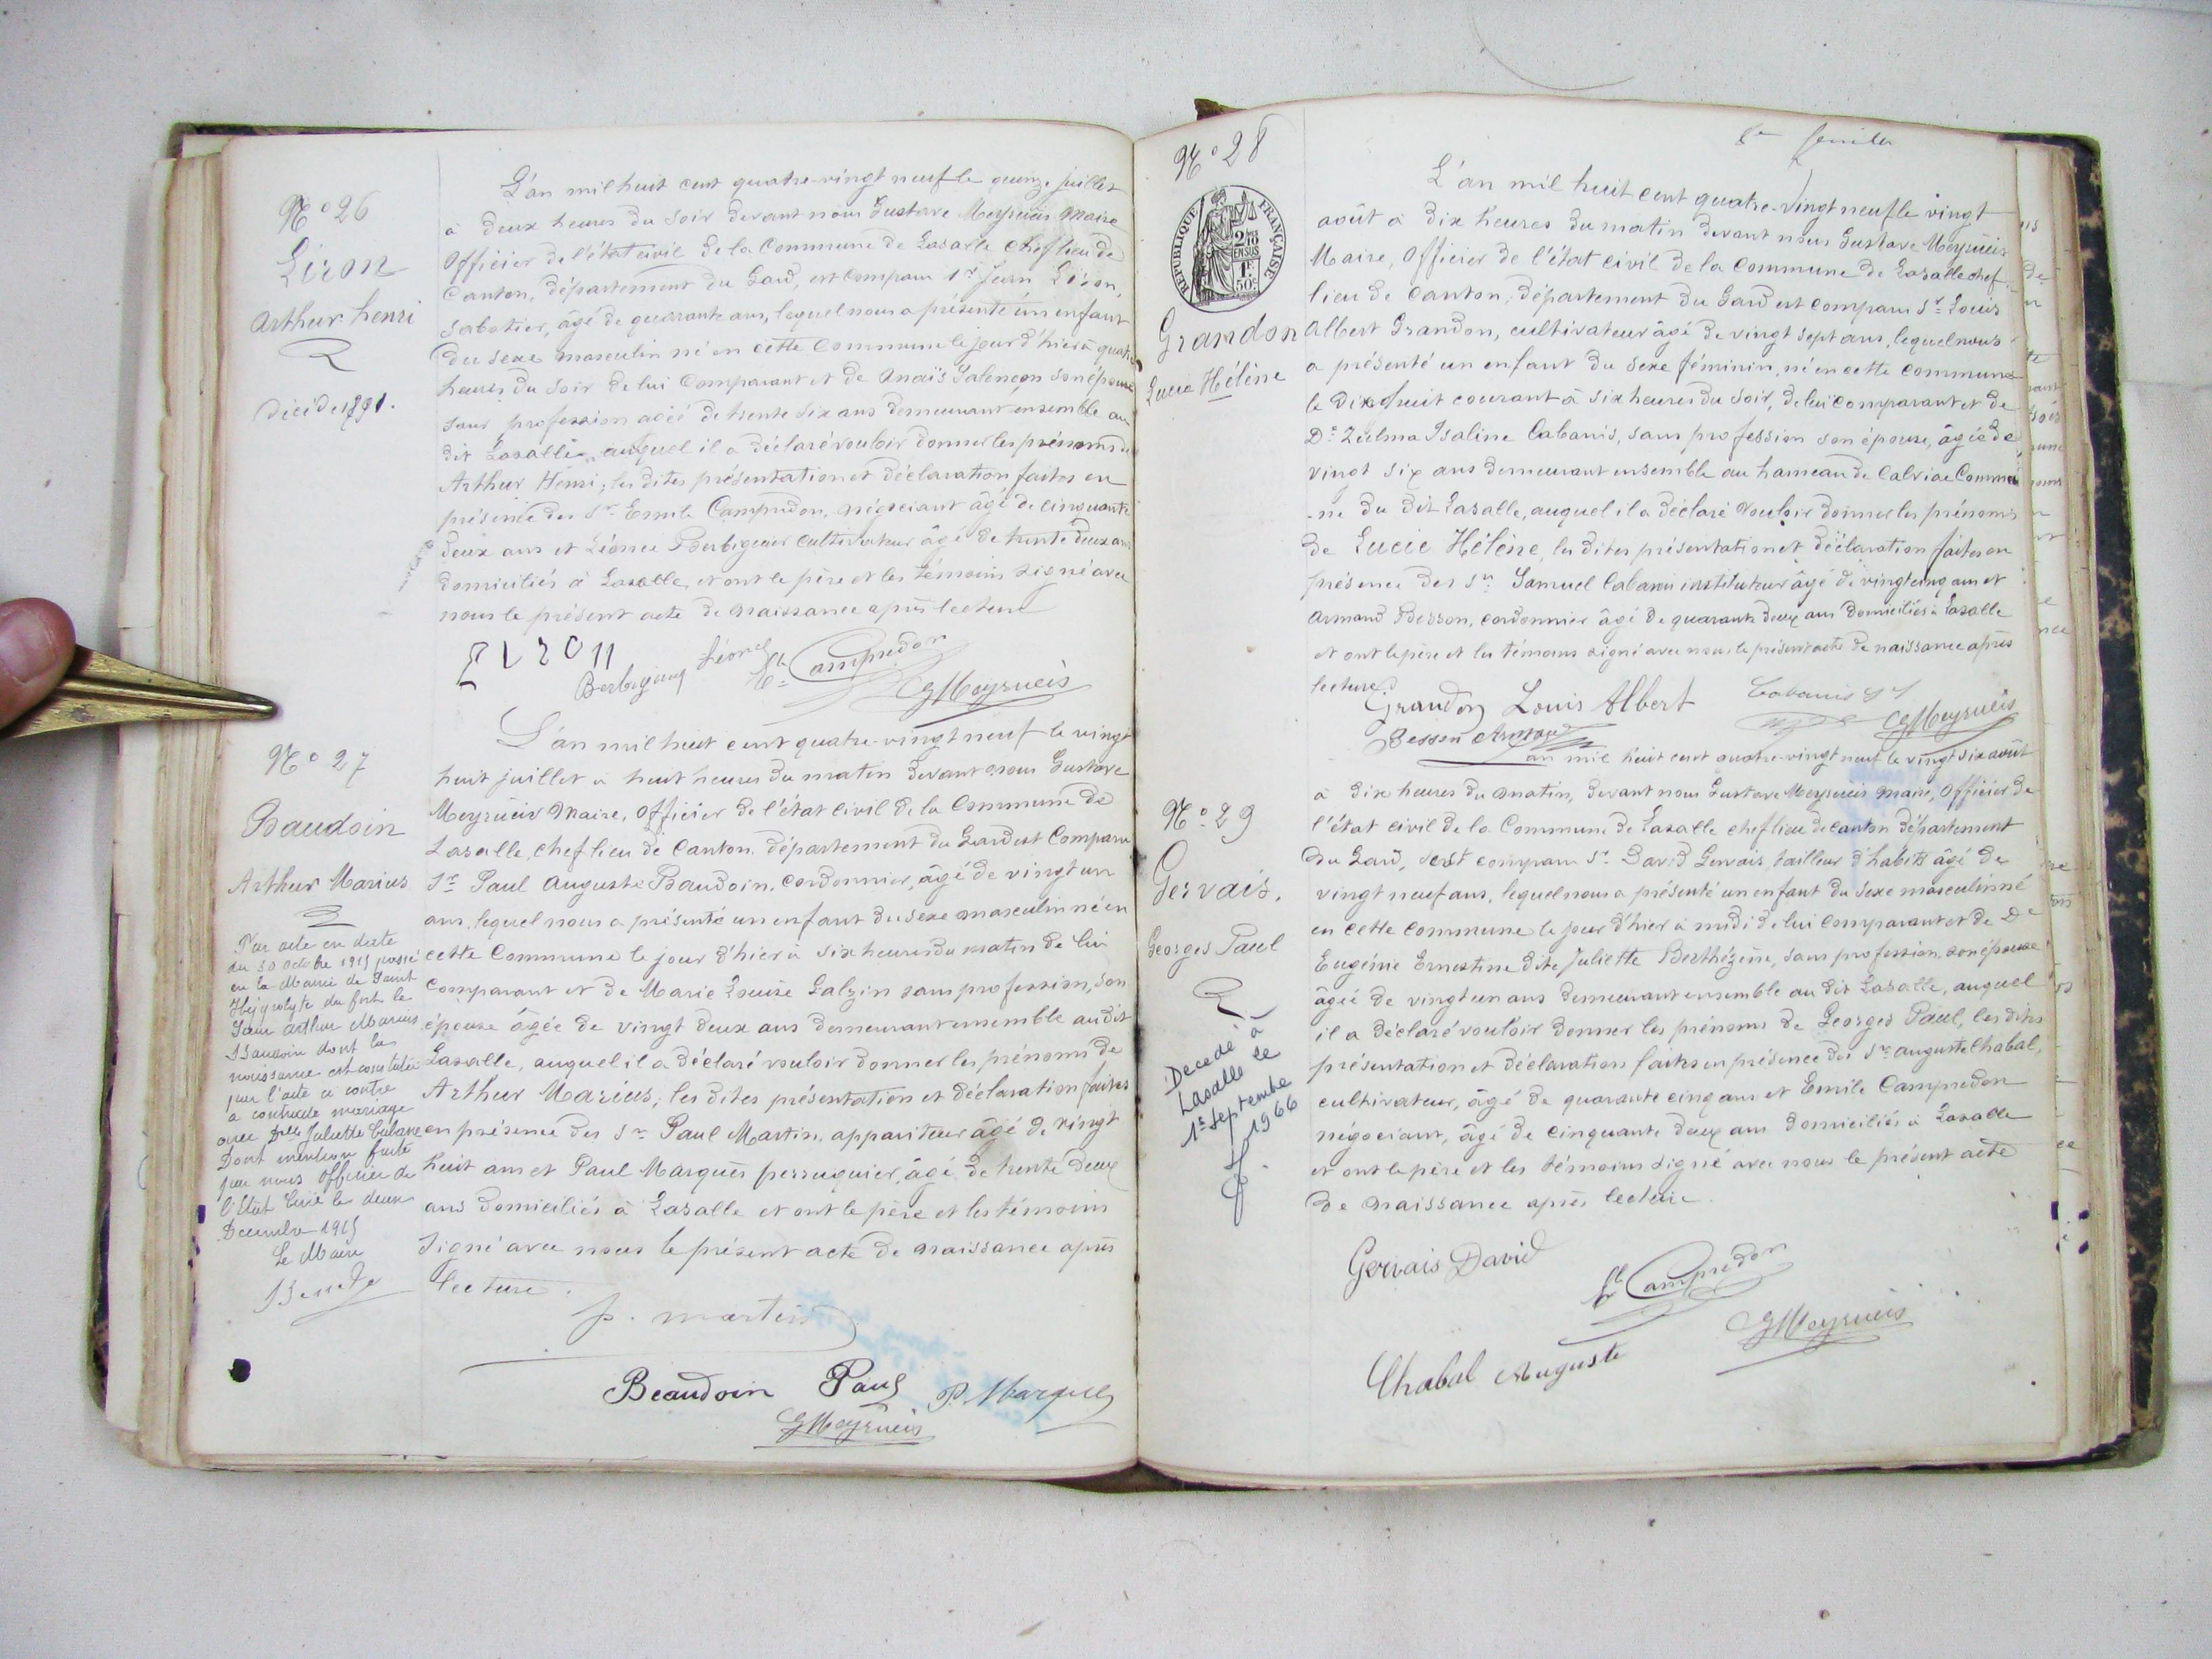 N° 26
Liron
Arthur henri
décédé 1891.
L'an mil huit cent quatre-vingt neuf le quinze juillet
à deux heures du soir devant nous Gustave Meyrueis Maire
Officier de l'état civil de la Commune de Lasalle chef lieu de
Canton, département du Gard, est comparu Sr Jean Liron,
Sabotier, âgé de quarante ans, lequel nous a présenté un enfant
du sexe masculin né en cette Commune le jour d'hier à quatre
heures du soir de lui Comparant et de Anaïs Salençon son épouse
sans profession agée de trente six ans demeurant ensemble au
dit Lasalle, auquel il a déclaré vouloir donner les prénoms de
Arthur Henri; les dites présentation et déclaration faites en
présence des Srs Emile Campredon, négociant âgé de cinquante
deux ans et Léonce Berbiguier Cultivateur âgé de trente deux ans
domiciliés à Lasalle, et ont le père et les témoins signé avec
nous le présent acte de naissance après lecture
LIRON
Berbiguier Léonce Ele Campredon
GMeyrueis
N° 27
Baudoin
Arthur Marius
Par acte en date
du 30 octobre 1915 passé
en la Mairie de Saint
Hippolyte du fort le
Sieur Arthur Marius
Baudoin dont la
naissance est constatée
par l'acte ci contre
a contracté mariage
avec Dlle Juliette
Dont mention faite
par nous Officier de
l'Etat Civil le deux
Decembre 1915
Le Maire
L'an mil huit cent quatre-vingt neuf le vingt
huit juillet à huit heures du matin devant nous Gustave
Meyrueis Maire, Officier de l'état civil de la Commune de
Lasalle, chef lieu de Canton, département du Gard est Comparu
Sr Paul Auguste Baudoin, Cordonnier, âgé de vingt un
ans, lequel nous a présenté un enfant du sexe masculin né en
cette Commune le jour d'hier à six heures du matin de lui
Comparant et de Marie Louise Galzin sans profession, son
épouse âgée de vingt deux ans demeurant ensemble au dit
Lasalle, auquel il a déclaré vouloir donner les prénoms de
Arthur Marius; les dites présentation et déclaration faites
en présence des Srs Paul Martin, appariteur âgé de vingt
huit ans et Paul Marquès perruquier, âgé de trente deux
ans domiciliés à Lasalle et ont le père et les témoins
signé avec nous le présent acte de naissance après
lecture.
p. martin
Beaudoin Paul P. Marques
GMeyrueis
N° 28
RÉPUBLIQUE FRANÇAISE
2/10
EN SUS
1F
50c
Grandon
Lucie Hélène
L'an mil huit cent quatre-vingt neuf le vingt
août à dix heures du matin devant nous Gustave Meyrueis
Maire, Officier de l'état civil de la Commune de Lasalle chef
lieu de Canton, département du Gard est comparu Sr Louis
Albert Grandon, cultivateur âgé de vingt sept ans, lequel nous
a présenté un enfant du sexe féminin, né en cette commune
le dix huit courant à six heures du soir, de lui comparant et de
De Zulma Isaline Cabanis, sans profession son épouse, âgée de
vingt six ans demeurant ensemble au hameau de Calviac Commu
-ne du dit Lasalle, auquel il a déclaré vouloir donner les prénoms
de Lucie Hélène, les dites présentation et déclaration faites en
présence des Srs Samuel Cabanis instituteur âgé de vingt cinq ans et
Armand Besson, cordonnier âgé de quarante deux ans domiciliés à Lasalle
et ont le père et les témoins signé avec nous le présent acte de naissance après
lecture.
Grandon Louis Albert Cabanis Sl
Besson Armand GMeyrueis
N° 29
Gervais.
Georges Paul
Decedé à
Lasalle le
1er Septembre
1966
L'an mil huit cent quatre-vingt neuf le vingt six août
à dix heures du matin, devant nous Gustave Meyrueis maire, Officier de
l'état civil de la Commune de Lasalle chef lieu de canton département
du Gard, est comparu Sr David Gervais, tailleur d'habits âgé de
vingt neuf ans, lequel nous a présenté un enfant du sexe masculin né
en cette commune le jour d'hier à midi de lui comparant et de De
Eugénie Ernestine dite Juliette Berthézène, sans profession, son épouse
âgée de vingt un ans demeurant ensemble au dit Lasalle, auquel
il a déclaré vouloir donner les prénoms de Georges Paul, les dites
présentation et déclaration faites en présence des Srs Auguste Chabal,
cultivateur, âgé de quarante cinq ans et Emile Campredon
négociant, âgé de cinquante deux ans domiciliés à Lasalle
et ont le père et les témoins signé avec nous le présent acte
de naissance après lecture.
Gervais David
Ele Campredon
GMeyrueis
Chabal Auguste